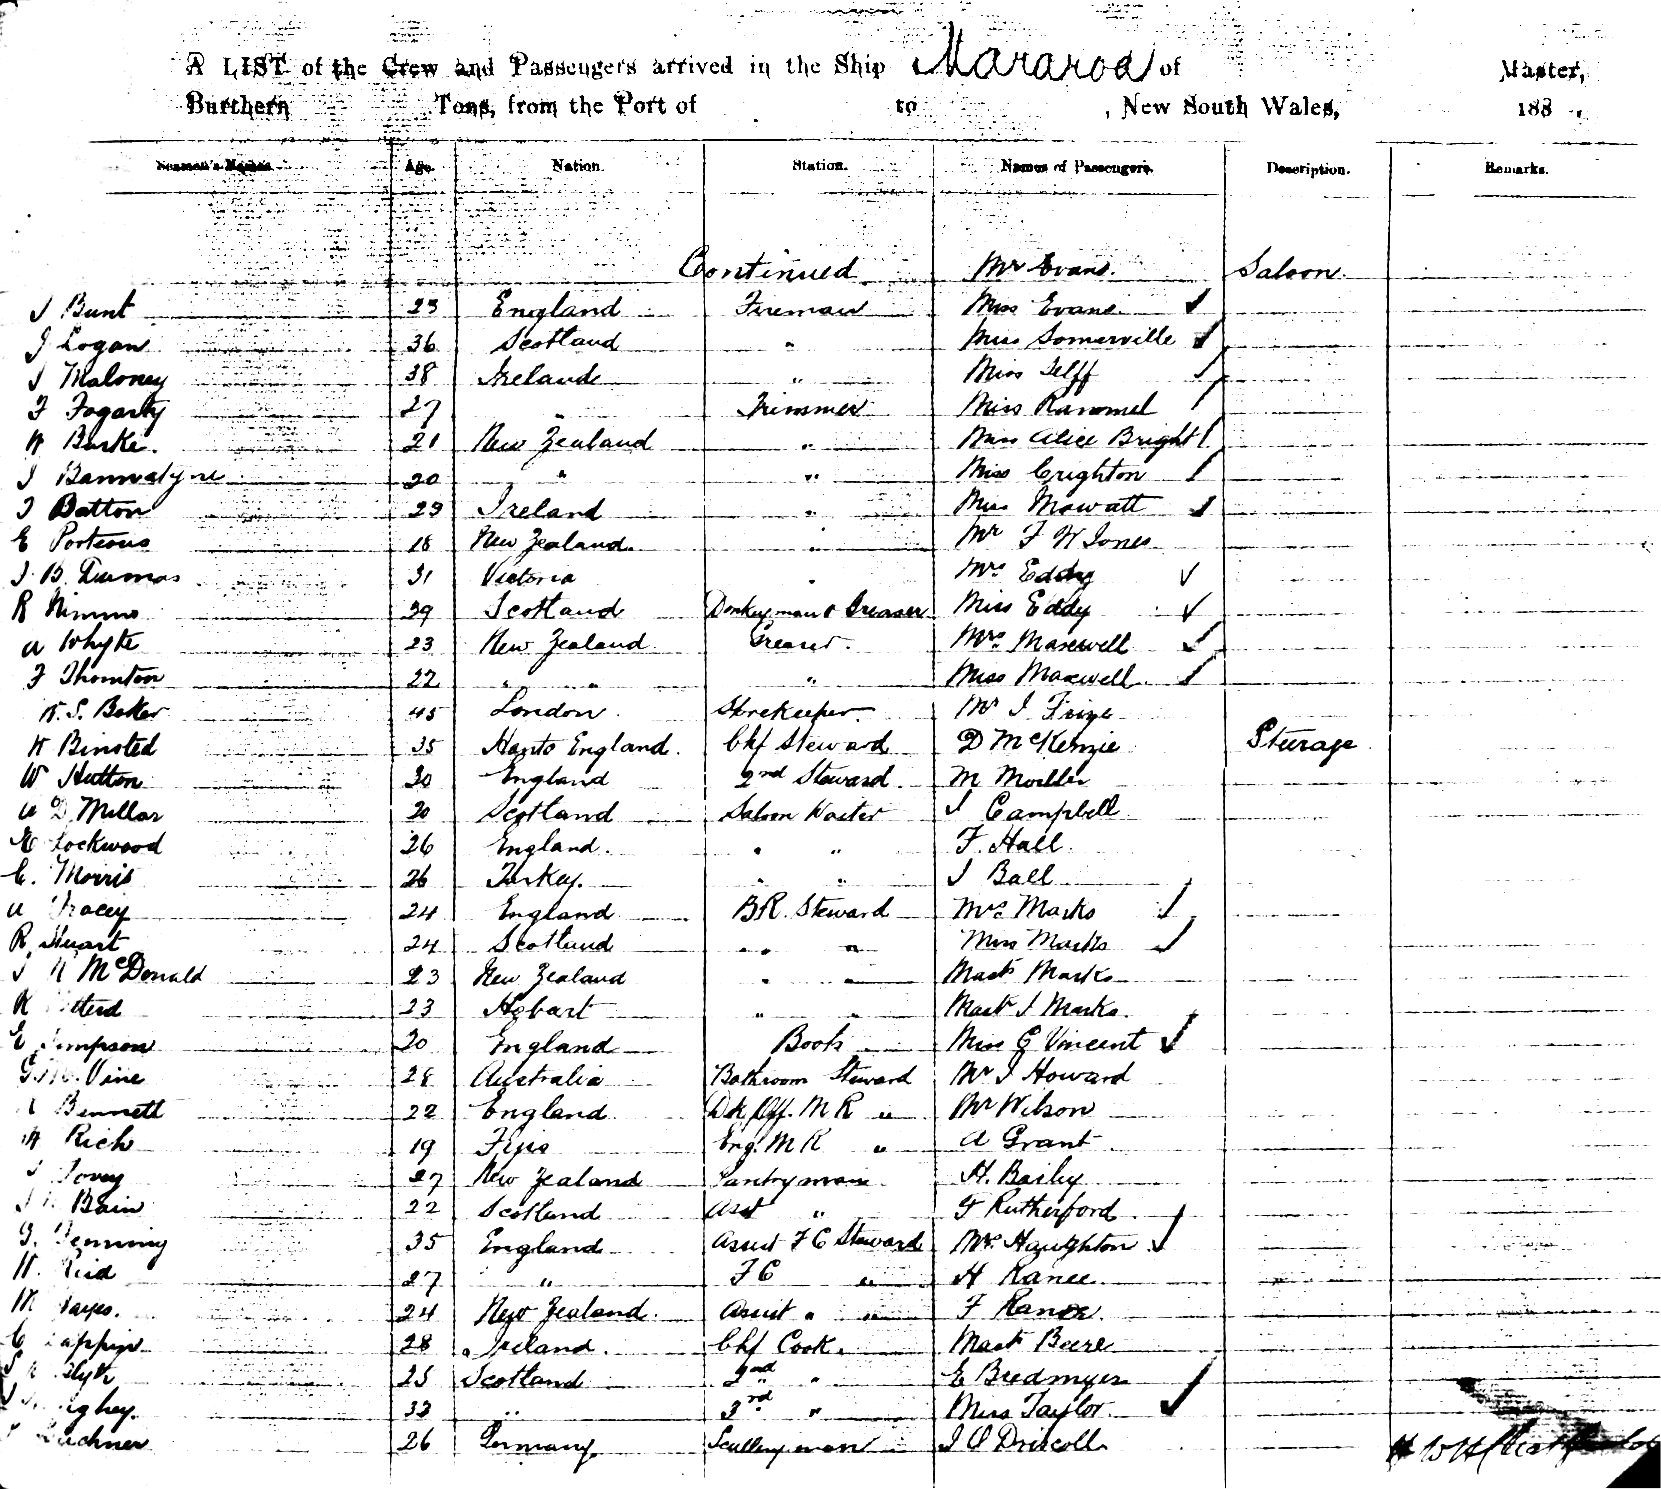 A LIST of the Crew and Passengers arrived in the Ship Mararoa of Master,
Burthern Tons, from the Port of to , New South Wales, 188 .
Seamen's Names. Age. Nation. Station. Names of Passengers. Description. Remarks.
Continued Mr Evans. Saloon.
J Bunt 23 England Fireman Miss Evans ✓
J Logan 36 Scotland " Miss Somerville ✓
J Maloney 38 Ireland " Miss Telff ✓
F Fogarty 27 " Trimmer Miss Rammel ✓
Burke. 21 New Zealand " Miss Alice Bright ✓
J Bannatyne 20 " " Miss Crighton ✓
J Batton 29 Ireland " Miss Mowatt ✓
E Porteous 18 New Zealand " Mr F W Jones
J. B. 31 Victoria " Mrs Eddy ✓
R Nimmo 29 Scotland Donkeyman & Greaser Miss Eddy ✓
A Whyte 23 New Zealand Greaser. Mrs Maxwell ✓
F Thornton 22 " " " Miss Maxwell ✓
S. Baker 45 London Storekeeper Mr J Frize
H Binsted 35 Hants England. Chf Steward D McKenzie Steerage
W Hutton 30 England 2nd Steward M Moeller
A D Millar 20 Scotland Saloon Waiter J Campbell
Lockwood 26 England. " " F. Hall
C. Morris 26 Turkey. " " J Ball
A Tracey 24 England B.R. Steward Mrs Marks ✓
R. Stuart 24 Scotland " " " Miss Marks ✓
McDonald 23 New Zealand " " Mast Marks
23 Hobart " " Mast J Marks
E Simpson 20 England Boots Miss G Vincent ✓
Vine 28 Australia Bathroom Steward Mr J Howard
Bennett 22 England Dk Off. M R " Mr Wilson
H Rich 19 Fijis Eng. M R " A Grant
Tovey 27 New Zealand Pantryman H. Baily
Bain 22 Scotland Asst " F Rutherford
35 England Assist F C Steward Mrs Haughton ✓
W. Reid 27 " F C " H Ranee
M Hayes. 24 New Zealand. Assist " " F Ranee
C 28 Ireland. Chf Cook. Mast Beere
Blyth 25 Scotland 2nd " E Bredmyer
33 " 3rd " Miss Taylor ✓
26 Germany Sculleryman J O Driscoll